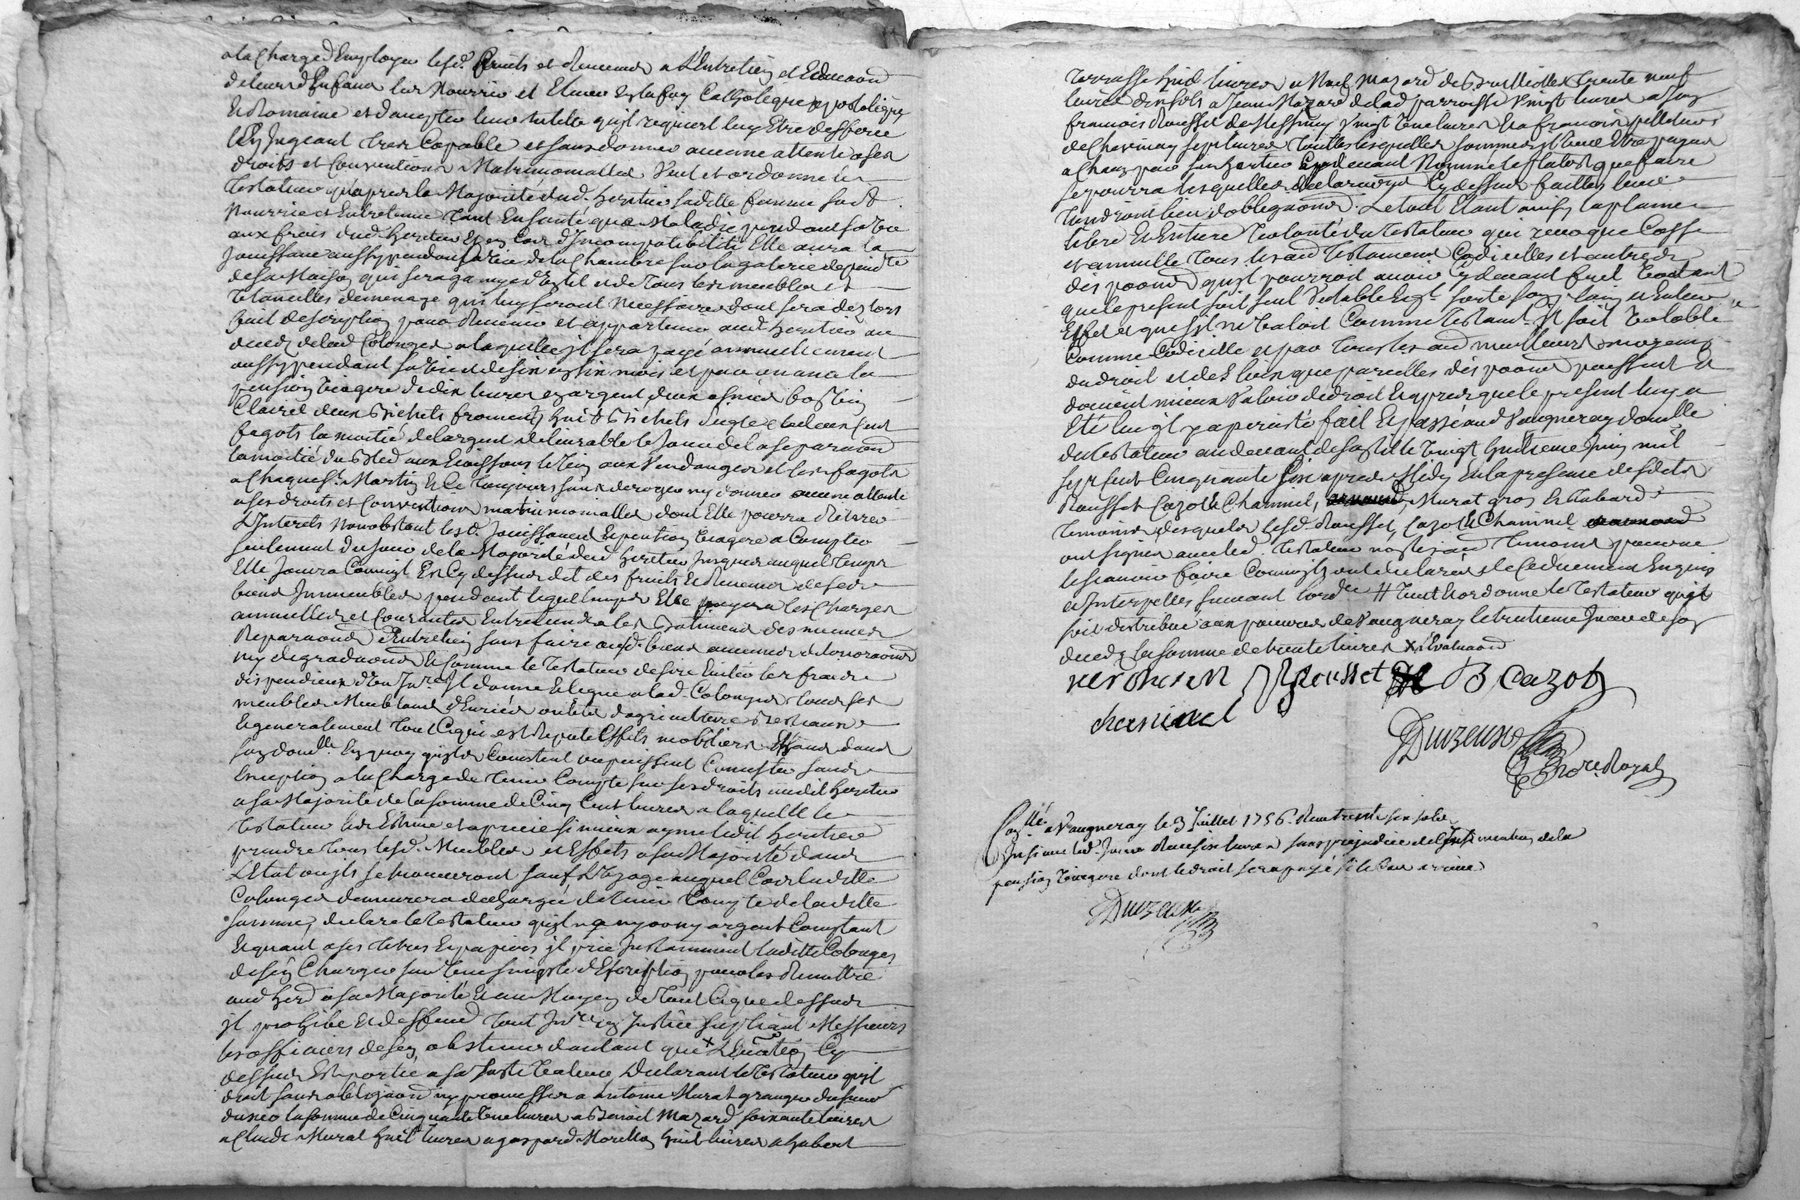 a la Charge d'Employer lesd. fruits et Revenus a L'Entretien et Education
de leurs d. Enfans les Nourrir et Elever en la foy Catholique apostolique
Et Romaine et d'accepter leur tutelle qu'il requiert luy Etre defferée
l'En Jugeant tres Capable et sans donner aucune attente a ses
droits et Conventions Matrimonialles Veut et ordonne le
Testateur qu'apres la Majorité dud. heritier sad. femme soit
Nourrie et Entretenue tant En santé que Maladie pendant sa vie
aux frais dud. heritier Et en Cas d'Incompatibilité Elle aura la
Jouissance aussy pendant sa vie de la Chambre sur la galerie
de sa Maison qui sera garnye de et de tous les meubles et
Utancilles de menage qui luy seront Necessaires dont sera des lors
fait description pour Revenir et appartenir aud. heritier au
deced de lad. Colonges a laquelle il sera payé annuellement
aussy pendant sa vie de six en six mois et par avance la
pension viagere de dix livres en argent deux asnées bon vin
Clairet deux Bichets froment, huit Bichets Seigle et cent
fagots la moitié de l'argent delivrable le Jour de la separation
la moitié du Bled aux Moissons le vin aux Vendanges et les fagots
a Chaque St. Martin Et ce toujours sans deroger ny donner aucune attente
a ses droits et Conventions matrimonialles dont Elle pourra Retirer
L'Interets Nonobstant lesd. Jouissances Et pention viagere a Compter
seulement du Jour de la Majorité dud. heritier Jusques auquel temps
Elle Jouira Comme il Est Cy dessus dit des fruits Et Revenus de ses
biens Immeubles pendant lequel temps Elle payera les Charges
annuelles et Courantes Entretiendra les Batiments des menues
Reparations d'Entretien sans faire auxd. biens aucunes deteriorations
ny degradations Et comme le Testateur desire Eviter les fraix
dispendieux d'un Inv.re Il donne Et legue a lad. Colonges tous ses
meubles Meublans d'Enrées outils d'agriculture Bestiaux
Et generalement tout Ce qui est Reputé Effets mobiliers Etans dans
son domlle. En quoy qu'ils Consistent ou puissent Consister sans
Exception a la Charge de tenir Compte sur ses droits audit heritier
a sa Majorité de la somme de Cinq Cent livres a laquelle le
Testateur les Estime et aprecie si mieux n'ayme ledit heritier
prendre tous lesd. Meubles et Effets a sa Majorité dans
L'Etat ou ils se trouveront sauf L'Usage auquel Cas ladite
Colonges demeurera dechargée de tenir Compte de ladite
somme, declare le Testateur qu'il n'a point argent Comptant
Et quant a ses titres Et papiers il prie Instamment ladite Colonges
de s'En Charger sur Une simple description pour les Remettre
aud. her. a sa Majorité Et au Moyen de tout Ce que dessus
il prohibe Et deffend tout Inv.re En Justice supliant Messieurs
les officiers de s'en abstenir d'autant que x L'Evaluation Cy
dessus Est portée a sa Juste Valeur Declarant le Testateur qu'il
droit sans obligation ny promesse a Antoine Murat granger du sieur
la somme de Cinquante Une livres a Benoit Mazard soixante livres
a Claude Murat huit livres a gaspard Morillon huit livres a hubert
Terrasse huit livres a Mazard de Brullioles trente neuf
livres dix sols a Jean Mazard de lad. parroisse Vingt livres a Jean
francois Rousset de Messimy Vingt Une livres Et a francois pelletier
de Chevinay sept livres toutes lesquelles sommes il veut Etre payées
a Chacun par son heritier Cy devant Nommé le plutost que faire
se pourra lesquelles declarations Cy dessus faittes leur
tiendront lieu d'obligations. Le tout Etant ainsy la pleine
libre Et Entiere Volonté du Testateur qui revoque Casse
et annulle tous les autres Testaments Codicilles et autres
disp.ons qu'il pourroit avoir Cy devant fait Voulant
que le present soit seul Valable Et sorte son plein Et Entier
Effet et que s'il ne Valoit Comme Testament, Il soit Valable
Comme Codicille et par tous les autres meilleurs moyens
du droit et de L'Usage que pareilles disp.ons puissent Et
doivent mieux Valoir de droit Et apres que le present luy a
Eté lû il y a persisté fait Et passé aud. Vaugneray domlle.
du testateur au devant de son lit le Vingt huitieme Juin mil
sept Cent Cinquante Six apres Midy En la presence de
Rousset Cazot Chaminel, Murat gros Et hubard
temoins desquels lesd. Rousset, Cazot Chaminel
ont signé avec led. Testateur non les autres temoins pour ne
le scavoir faire Comme ils ont declaré de Ce duement Enquis
et Interpellés suivant l'ord.ce # Veut Et ordonne le Testateur qu'il
soit distribué aux pauvres de Vaugneray le trentieme Jour de son
deced la somme de trente livres x l'Evaluation
Rousset B Cazot
chaminel
Duizeux
Nore. Royal
Con.llé a Vaugneray le 3 Juillet 1756. Reçu trente six sols
Insinué led. Jour Reçu six livres sans prejudice de l'Insinuation de la
pension viagere dont le droit sera payé si le Cas arrive
Duizeux